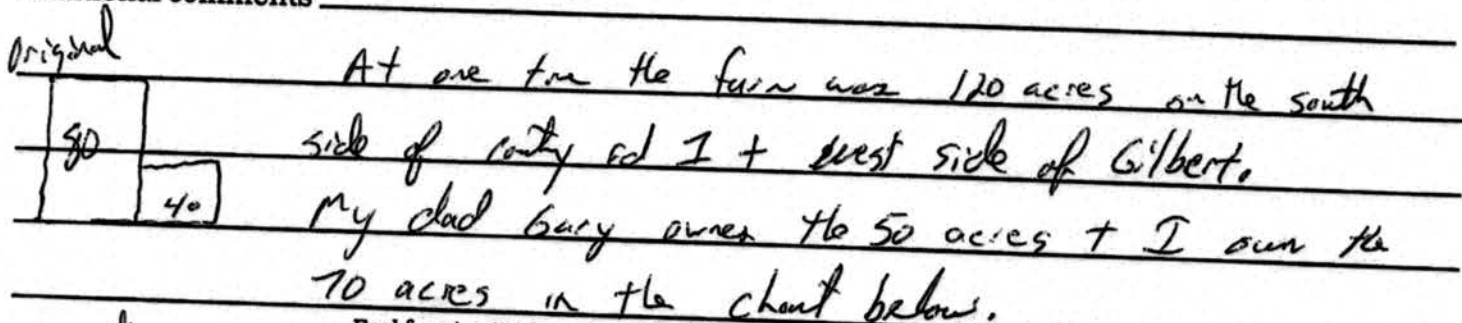 comments
Original
At one time the farm was 120 acres on the south
80
side of county rd I + west side of Gilbert.
40
My dad Gary owns the 50 acres + I own the
70 acres in the chart below.